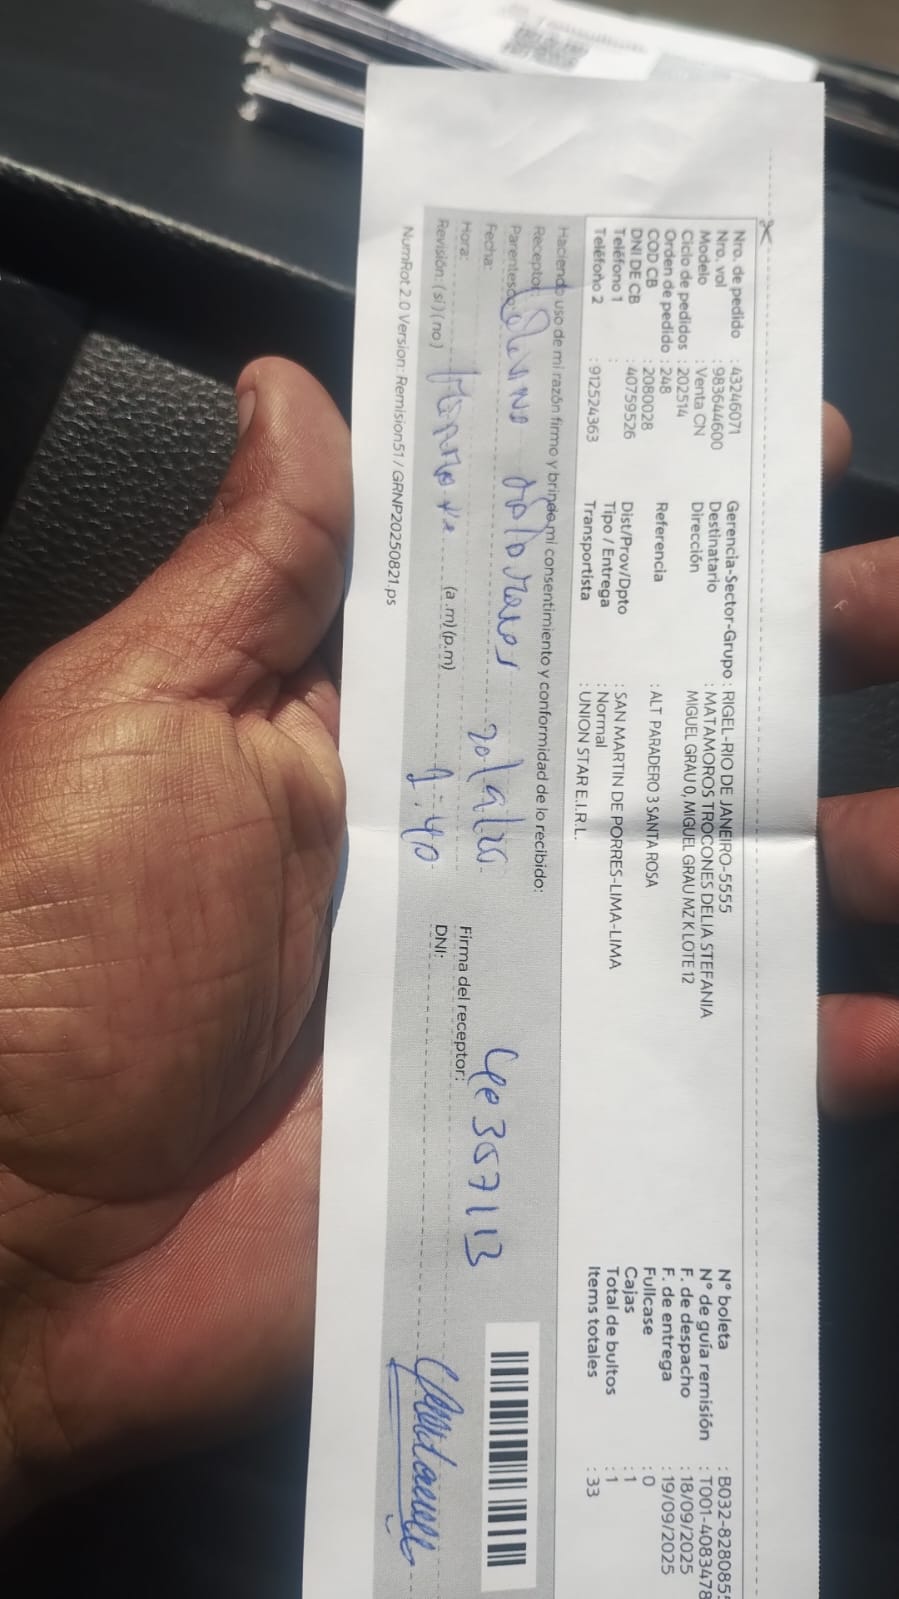 Nro. de pedido : 43246071
Nro. vol : 983644600
Modelo : Venta CN
Ciclo de pedidos : 202514
Orden de pedido : 248
COD CB : 2080028
DNI DE CB : 40759526
Teléfono 1 :
Teléfono 2 : 912524363
Gerencia-Sector-Grupo : RIGEL-RIO DE JANEIRO-5555
Destinatario : MATAMOROS TROCONES DELIA STEFANIA
Dirección MIGUEL GRAU 0, MIGUEL GRAU MZ K LOTE 12
Referencia : ALT PARADERO 3 SANTA ROSA
Dist/Prov/Dpto : SAN MARTIN DE PORRES-LIMA-LIMA
Tipo / Entrega : Normal
Transportista : UNION STAR E.I.R.L.
N° boleta : B032-8280855
N° de guía remisión : T001-4083478
F. de despacho : 18/09/2025
F. de entrega : 19/09/2025
Fullcase : 0
Cajas : 1
Total de bultos : 1
Items totales : 33
Haciendo uso de mi razón firmo y brindo mi consentimiento y conformidad de lo recibido:
Receptor:
Parentesco:
Fecha:
Hora: (a .m) (p.m)
Revisión: ( si ) ( no )
1:40
Firma del receptor:
DNI:
40357113
NumRot 2.0 Version: Remision51 / GRNP20250821.ps